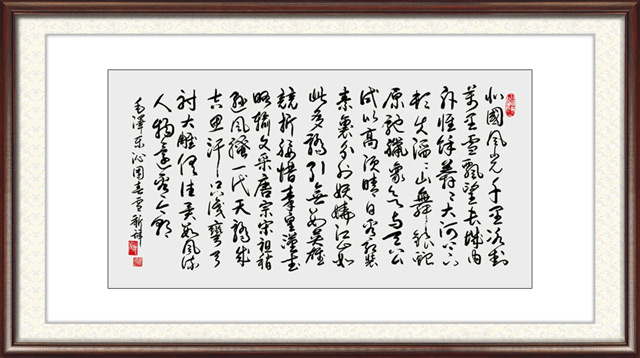 北國風光千里冰封
萬里雪飄望長城内
外惟餘莽莽大河上下
頓失滔滔山舞銀蛇
原馳蠟象欲与天公
試比高須晴日看紅裝
素裹分外妖嬈江山如
此多嬌引無數英雄
競折腰惜秦皇漢武
略輸文采唐宗宋祖稍
遜風騷一代天驕成
吉思汗只識彎弓
射大雕俱往矣數風流
人物還看今朝
毛澤東沁園春雪